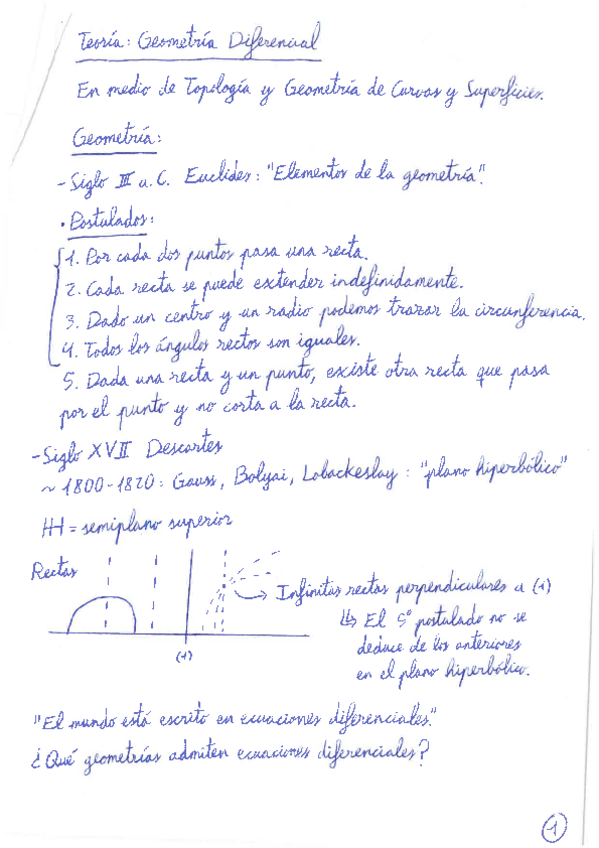 Teoría: Geometría Diferencial
En medio de Topología y Geometría de Curvas y Superficies.
Geometría:
- Siglo III a.C. Euclides: "Elementos de la geometría".
• Postulados:
1. Por cada dos puntos pasa una recta.
2. Cada recta se puede extender indefinidamente.
3. Dado un centro y un radio podemos trazar la circunferencia.
4. Todos los ángulos rectos son iguales.
5. Dada una recta y un punto, existe otra recta que pasa
por el punto y no corta a la recta.
- Siglo XVII Descartes
~ 1800-1820: Gauss, Bolyai, Lobackeslay: "plano hiperbólico"
ℍ = semiplano superior
Rectas
(1)
Infinitas rectas perpendiculares a (1)
↳ El 5º postulado no se
deduce de los anteriores
en el plano hiperbólico.
"El mundo está escrito en ecuaciones diferenciales."
¿Qué geometrías admiten ecuaciones diferenciales?
1